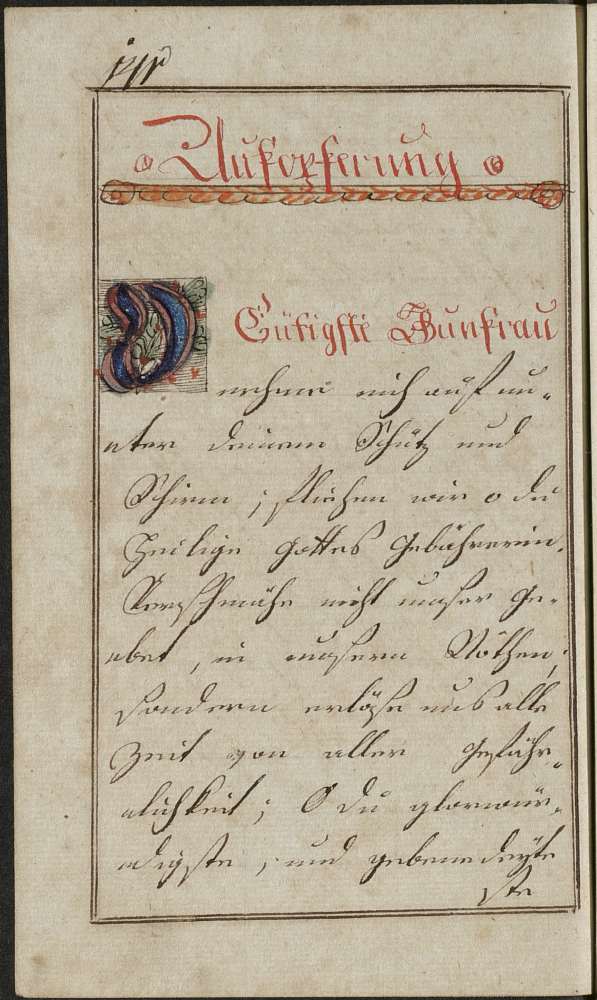 Aufopferung
O Gütigste Junkfrau
nehme mich auf un„
nter deinem Schutz und
Schirm; fliehen wir o du
Heilige Gottes Gebährerin.
Verschmähe nicht unser Ge„
ebet, in unsern Nöthen;
sondern erlöse uns alle
Zeit von aller Gefähr„
rlichkeit; O du glorwür„
rdigste, und gebenedeyte
ste